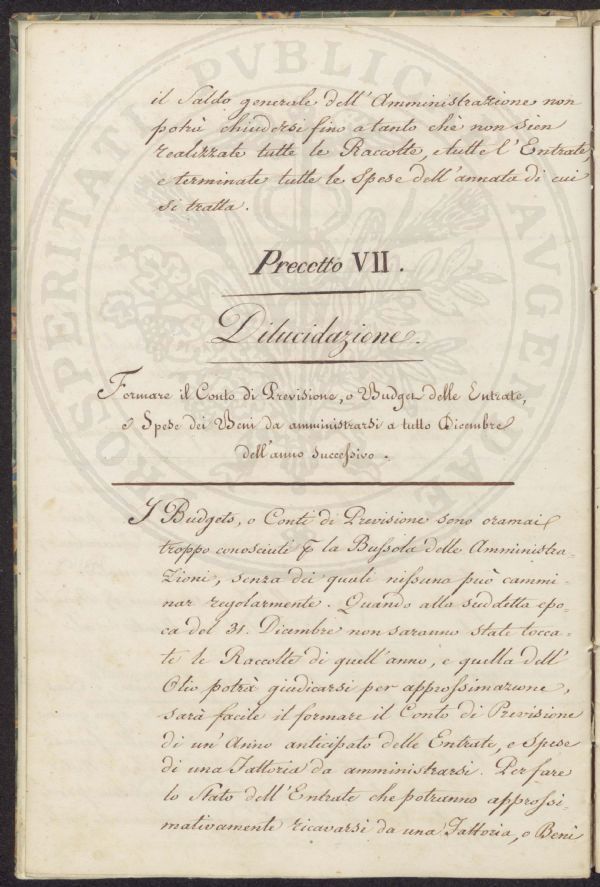 il Saldo generale dell'Amministrazione non
potrà chiudersi fino a tanto che non sien
realizzate tutte le Raccolte, e tutte l'Entrate,
e terminate tutte le Spese dell'annata di cui
si tratta.
Precetto VII.
Dilucidazione.
Formare il Conto di Previsione, o Budget delle Entrate,
e Spese dei Beni da amministrarsi a tutto Dicembre
dell'anno successivo.
I Budgets, o Conti di Previsione sono oramai
troppo conosciuti p la Bussola delle Amministra-
zioni, senza dei quali nissuna può cammi-
nar regolarmente. Quando alla suddetta epo-
ca del 31. Dicembre non saranno state tocca-
te le Raccolte di quell'anno, e quella dell'
Olio potrà giudicarsi per approssimazione,
sarà facile il formare il Conto di Previsione
di un'Anno anticipato delle Entrate, e Spese
di una Fattoria da amministrarsi. Per fare
lo Stato dell'Entrate che potranno approssi-
mativamente ricavarsi da una Fattoria, o Beni
PROSPERITATI PVBLICAE AVGENDAE